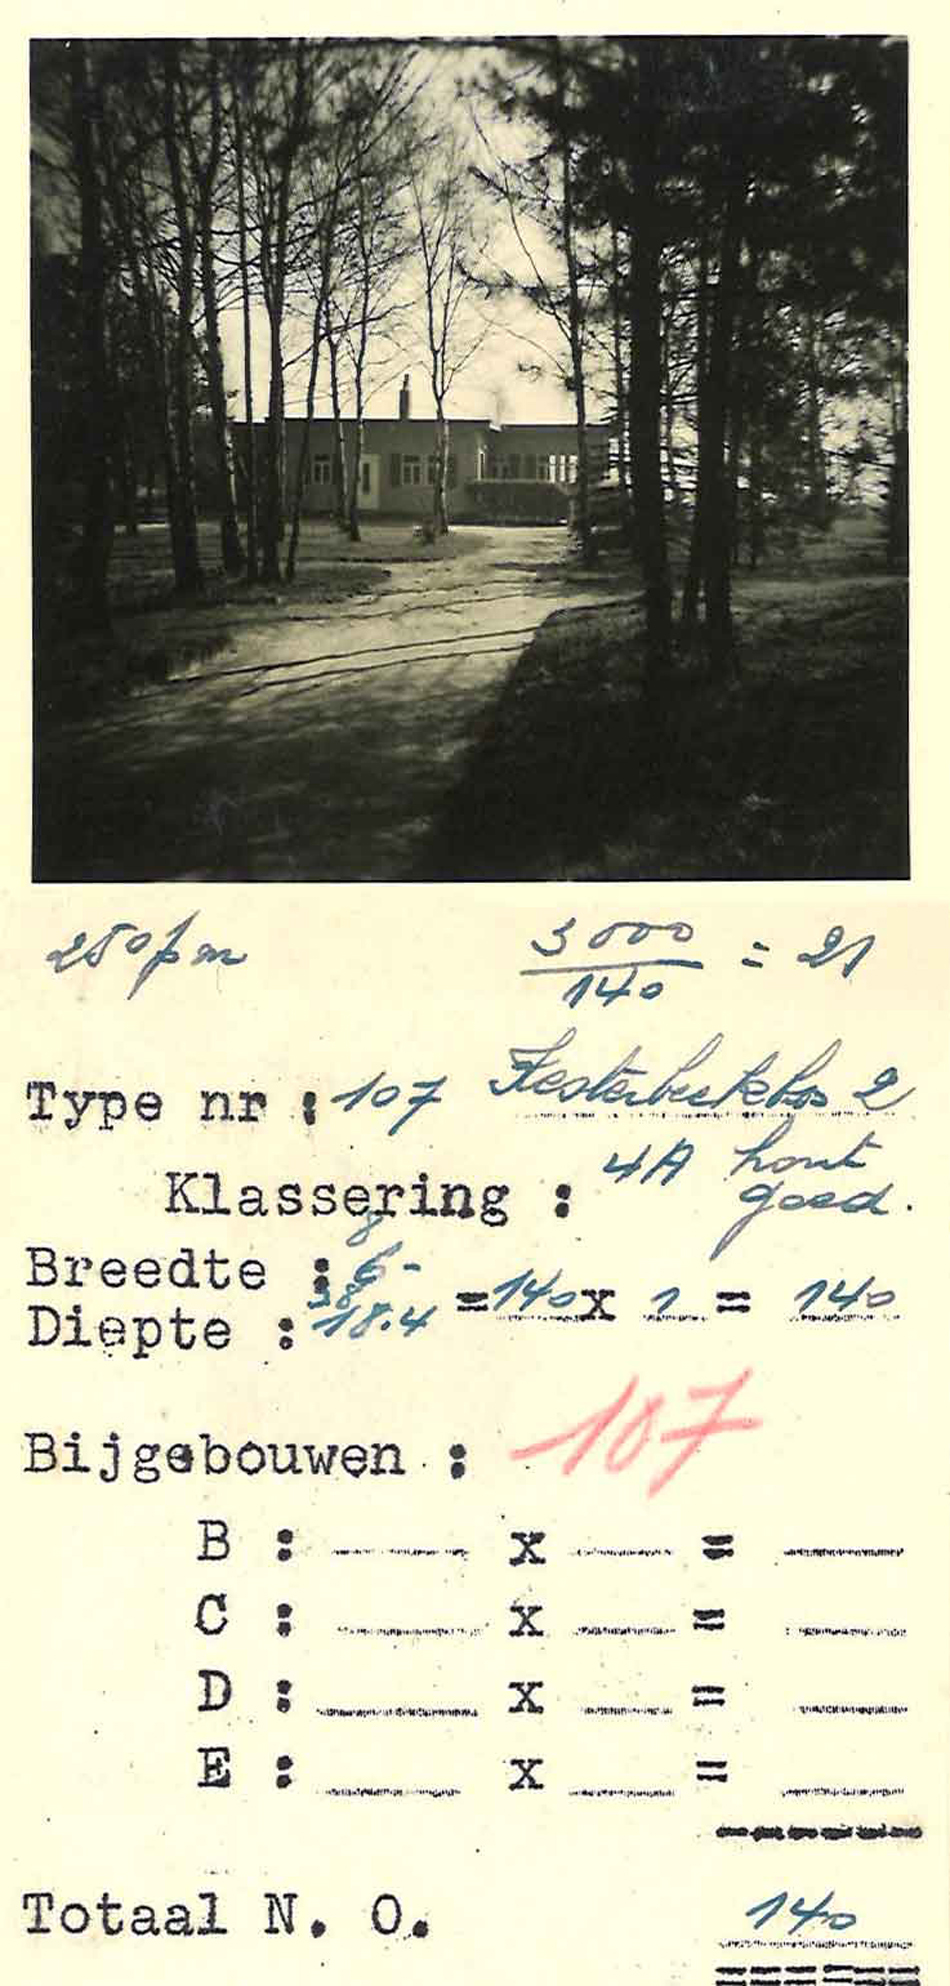 250 pm
3000 / 140 = 21
Type nr : 107 Kesterbeekbos 2
Klassering : 4A hout
goed.
8
Breedte : 6-
= 140 x 1 = 140
Diepte : 18.4
Bijgebouwen : 107
B : x =
C : x =
D : x =
E : x =
Totaal N. O. 140